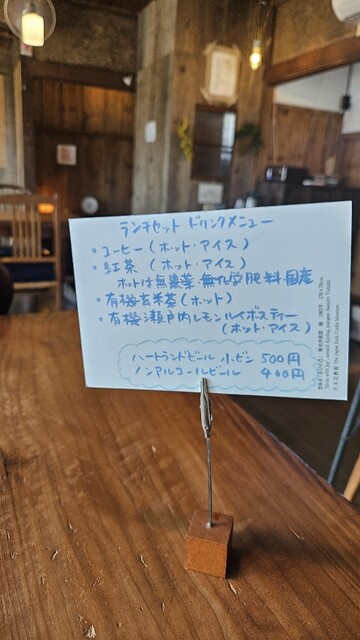 ランチセット ドリンクメニュー
・コーヒー（ホット・アイス）
・紅茶（ホット・アイス）
ホットは無農薬・無化学肥料国産
・有機玄米茶（ホット）
・有機瀬戸内レモンルイボスティー
（ホット・アイス）
ハートランドビール 小ビン 500円
ノンアルコールビール 400円